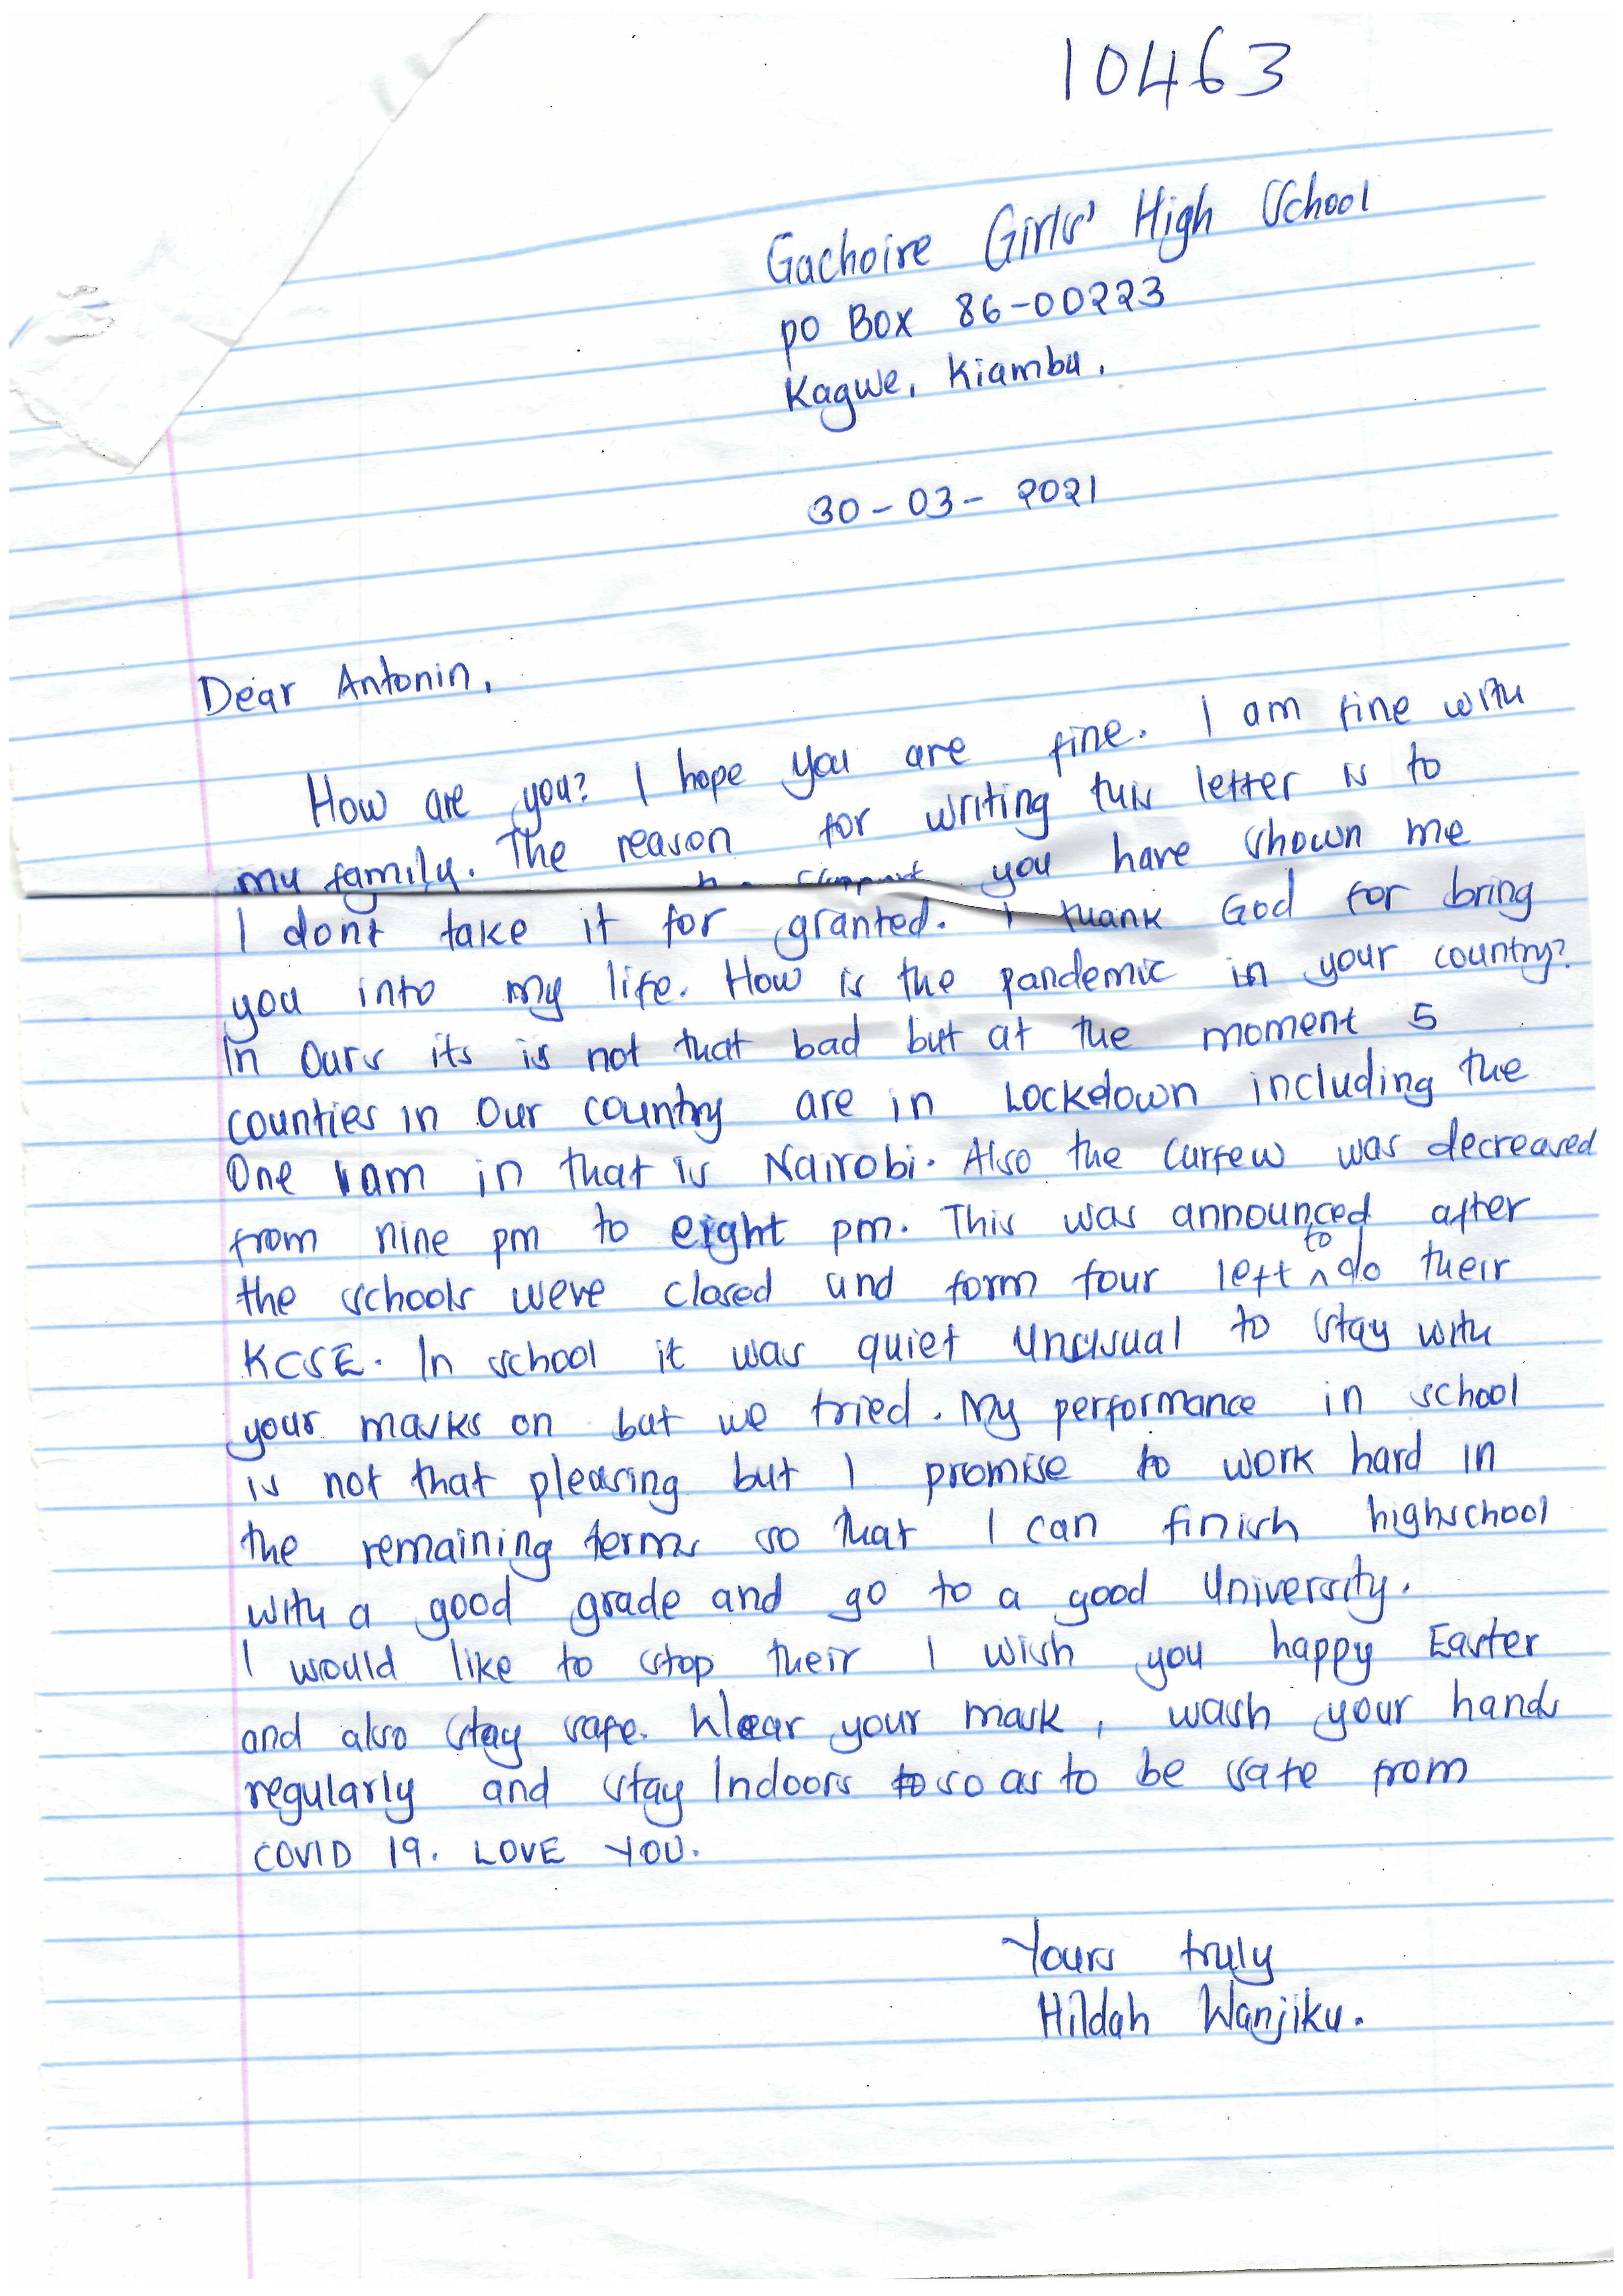 10463
Gachoire Girls' High School
po Box 86-00223
Kagwe, Kiambu.
30-03-2021
Dear Antonin,
How are you? I hope you are fine. I am fine with
my family. The reason for writing this letter is to
support you have shown me
I dont take it for granted. I thank God for bring
you into my life. How is the pandemic in your country?
In Ours its is not that bad but at the moment 5
counties in Our country are in Lockdown including the
One I am in that is Nairobi. Also the Curfew was decreased
from nine pm to eight pm. This was announced after
the schools were closed and form four left to do their
KCSE. In school it was quiet unusual to stay with
your masks on but we tried. My performance in school
is not that pleasing but I promise to work hard in
the remaining terms so that I can finish highschool
with a good grade and go to a good University.
I would like to stop their I wish you happy Easter
and also stay safe. Wear your mask, wash your hands
regularly and stay Indoors so as to be safe from
COVID 19. LOVE YOU.
Yours truly
Hildah Wanjiku.